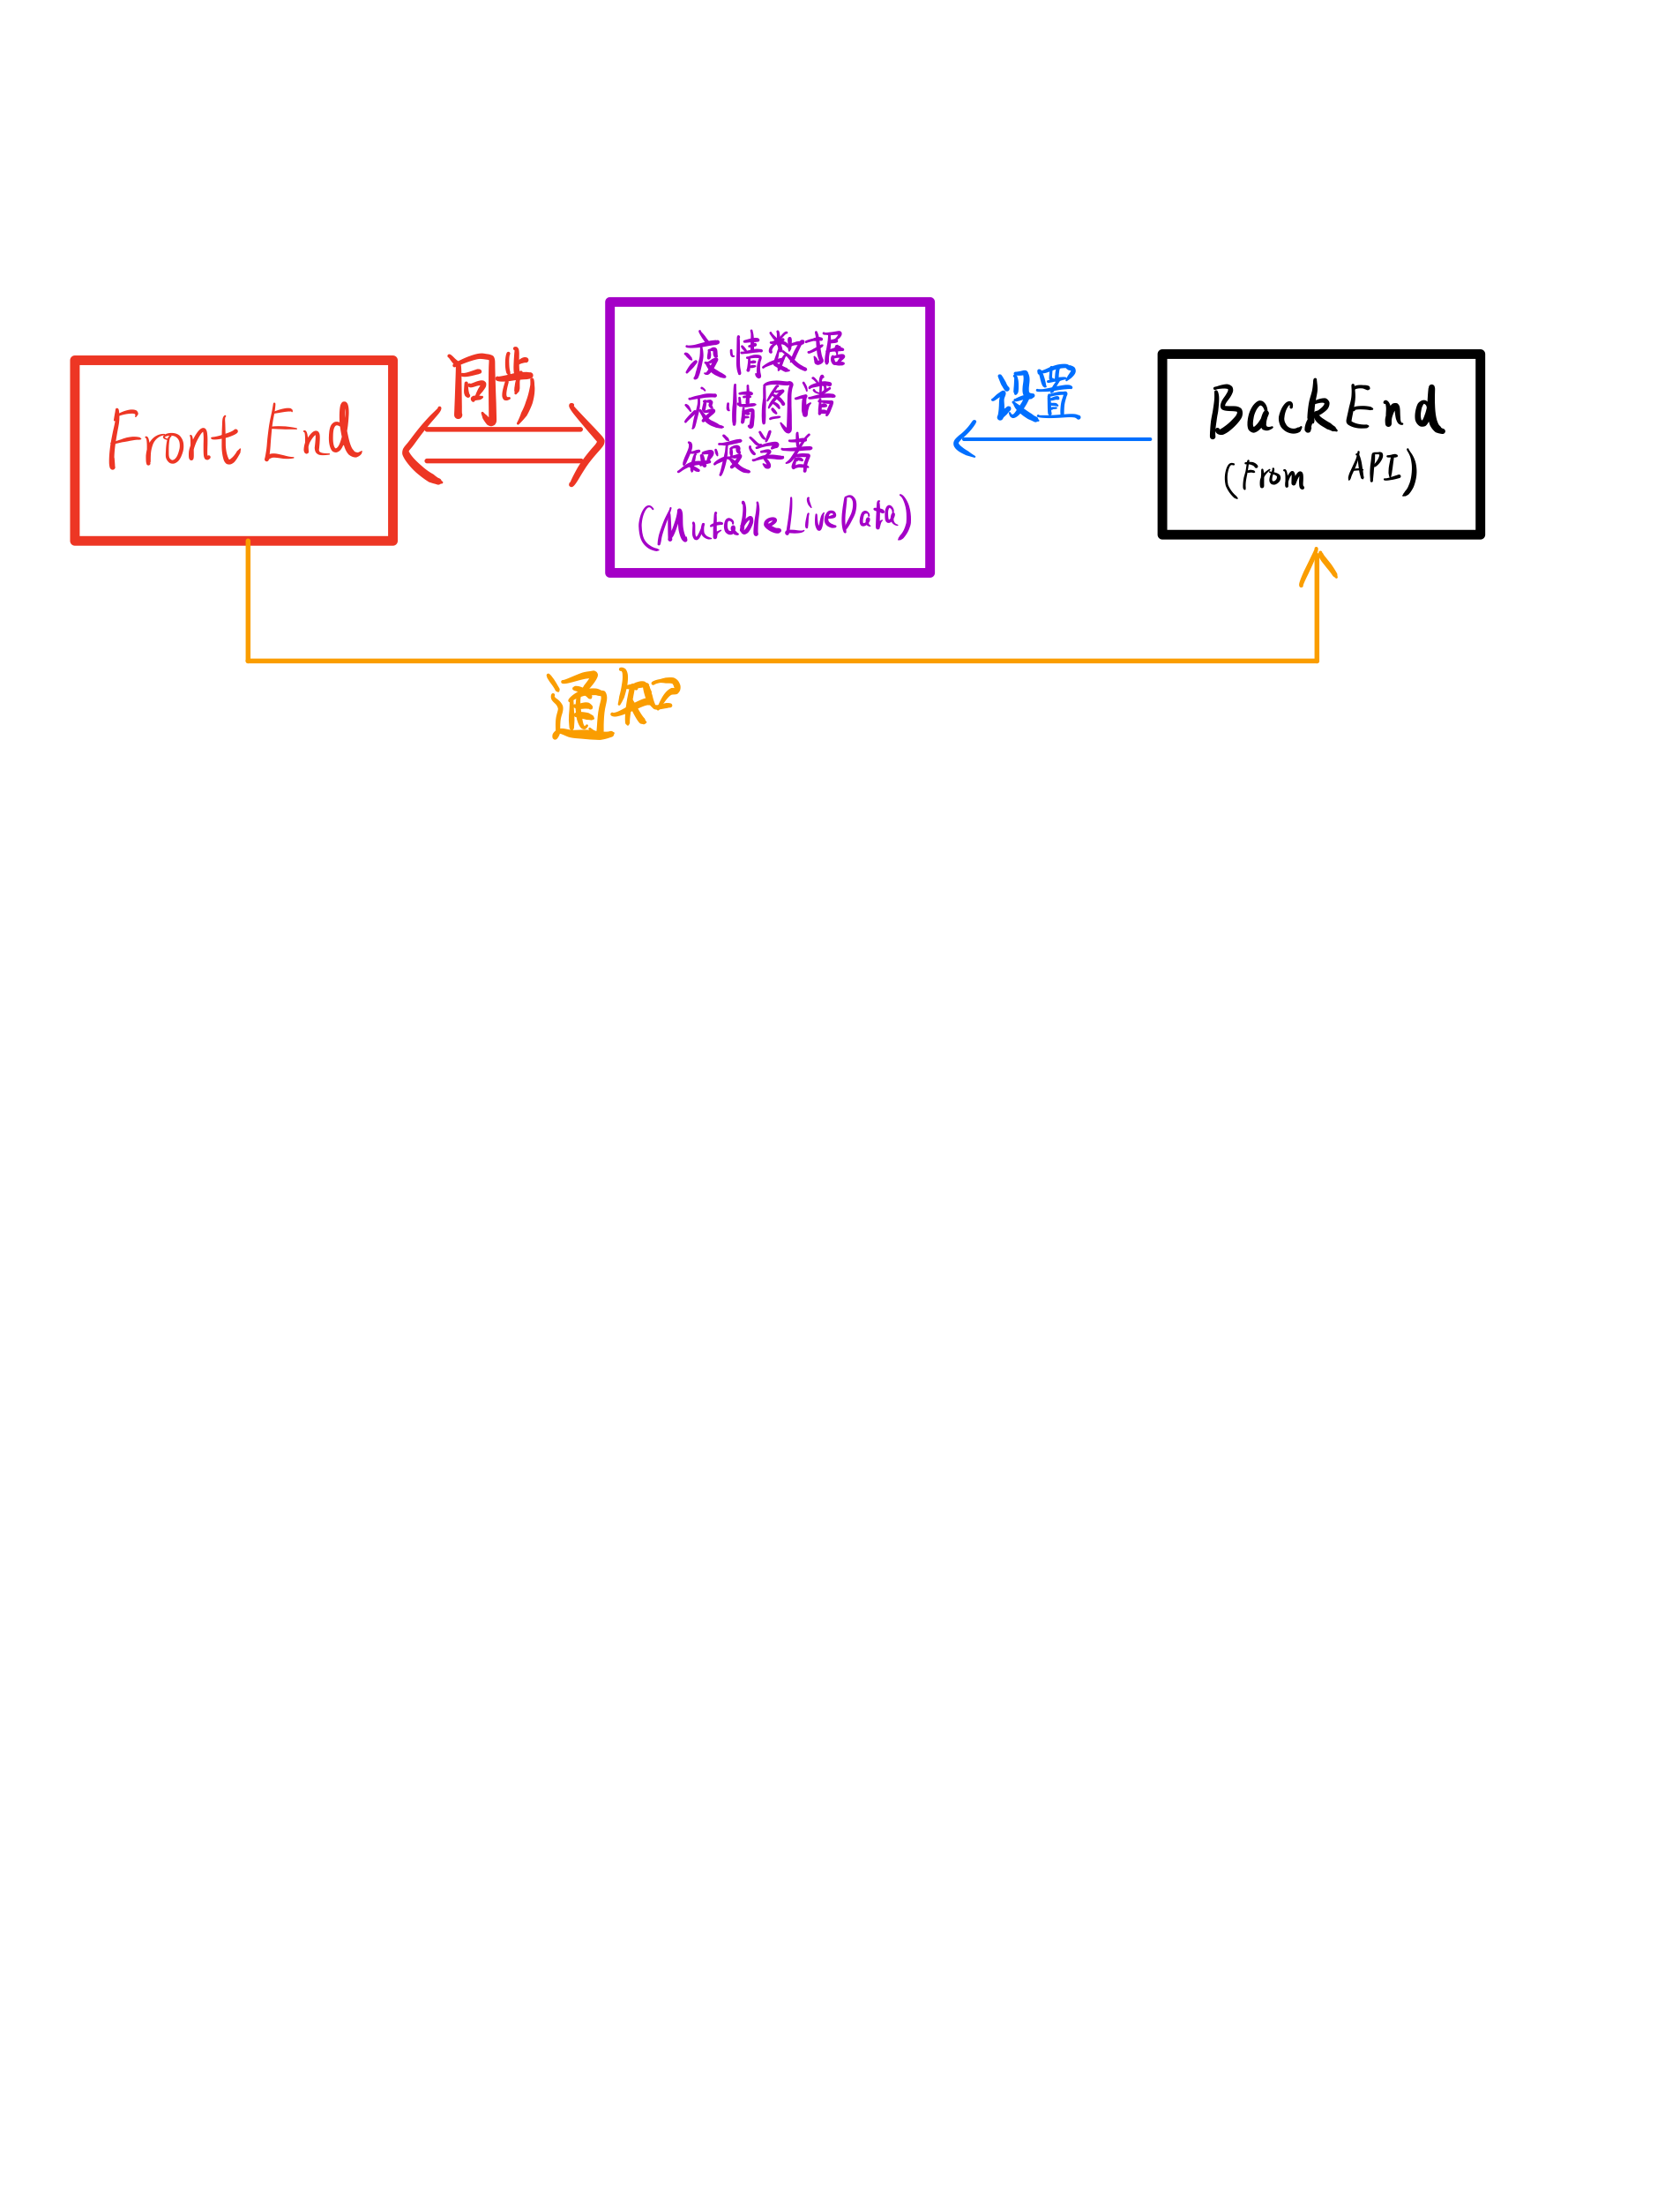 Front End
同步
疫情数据
疫情图谱
知疫送者
(MutableLiveData)
设置
Back End
(From API)
通知